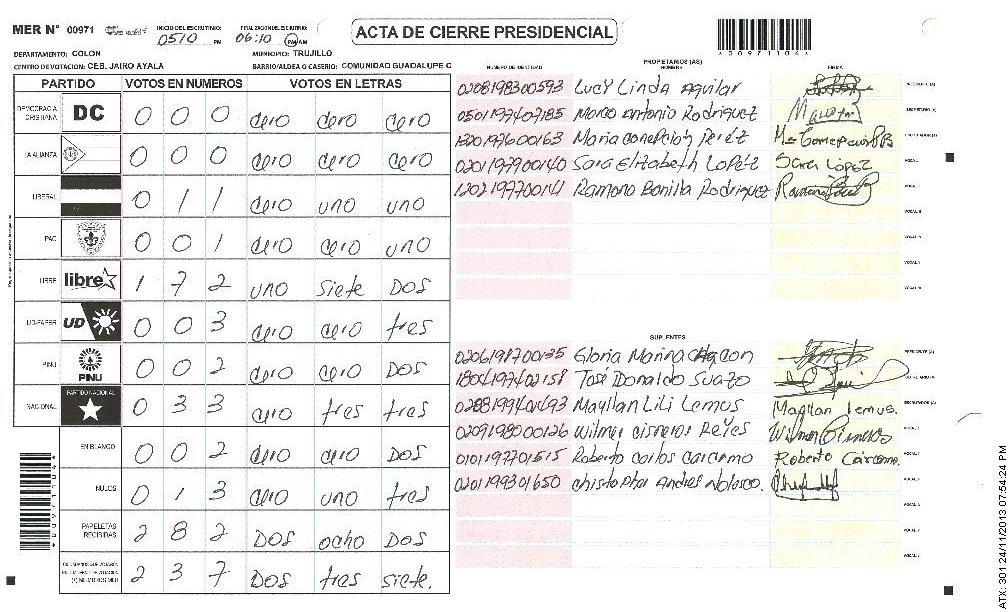 MER N° 00971 INICIO DEL ESCRUTINIO: 0510 PM FINALIZACION DEL ESCRUTINIO: 06:10 PM AM
ACTA DE CIERRE PRESIDENCIAL
*00971104*
DEPARTAMENTO: COLON MUNICIPIO: TRUJILLO
CENTRO DE VOTACION: CEB. JAIRO AYALA BARRIO/ALDEA O CASERIO: COMUNIDAD GUADALUPE C
PARTIDO VOTOS EN NUMEROS VOTOS EN LETRAS
DEMOCRACIA CRISTIANA DC 0 0 0 cero cero cero
LA ALIANZA 0 0 0 cero cero cero
LIBERAL 0 1 1 cero uno uno
PAC 0 0 1 cero cero uno
LIBRE libre 1 7 2 uno siete DOS
UD-FAPER UD 0 0 3 cero cero tres
PINU PINU 0 0 2 cero cero DOS
NACIONAL PARTIDO NACIONAL 0 3 3 cero tres tres
EN BLANCO 0 0 2 cero cero DOS
NULOS 0 1 3 cero uno tres
PAPELETAS RECIBIDAS 2 8 2 DOS ocho DOS
(+) MIEMBROS MER 2 3 7 DOS tres siete.
PROPIETARIOS (AS)
NUMERO DE IDENTIDAD NOMBRE FIRMA
0208198300593 Lucy Linda Aguilar PRESIDENTE (A)
0501197407185 Marco Antonio Rodriguez SECRETARIO (A)
Maria concepción perez ESCRUTADOR (A)
0201197900140 Sara Elizabeth Lopez Sara López VOCAL I
1202197700141 Ramona Bonilla Rodriguez VOCAL II
SUPLENTES
Gloria Marina PRESIDENTE (A)
1804197402158 José Donaldo Suazo SECRETARIO (A)
Mayllan Lili Lemus Mayllan Lemus. ESCRUTADOR (A)
0209198000126 Wilmer cisneros Reyes Wilmer Cisneros VOCAL I
0101197701515 Roberto carlos carcamo Roberto Carcamo.
0201199301650 christopher Andres Nolasco.
*00971104*
ATX: 301 24/11/2013 07:54:24 PM